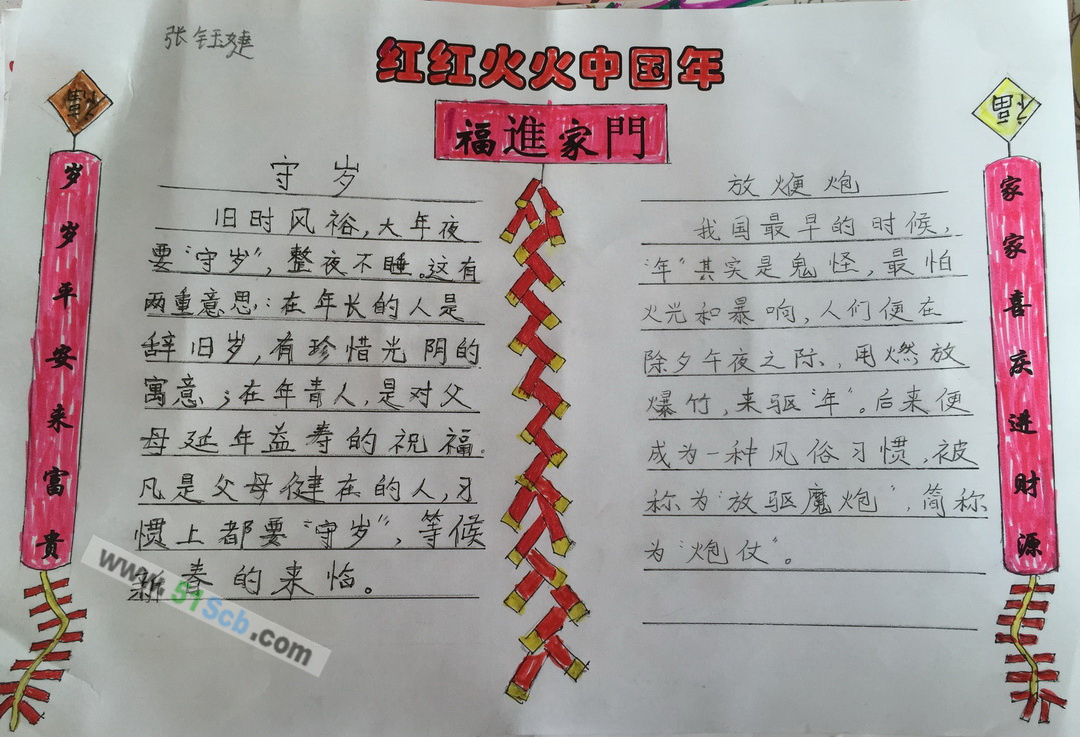 张钰婕
红红火火中国年
福
福
福進家門
岁岁平安来富贵
守岁
旧时风裕,大年夜
要"守岁",整夜不睡。这有
两重意思:在年长的人是
辞旧岁,有珍惜光阴的
寓意;在年青人,是对父
母延年益寿的祝福.
凡是父母健在的人,习
惯上都要"守岁",等候
新春的来临。
放炮
我国最早的时候,
"年"其实是鬼怪,最怕
火光和暴响,人们便在
除夕午夜之际、用燃放
爆竹,来驱"年"。后来便
成为一种风俗习惯,被
称为"放驱魔炮",简称
为"炮仗"。
家家喜庆进财源
www.51Scb.com